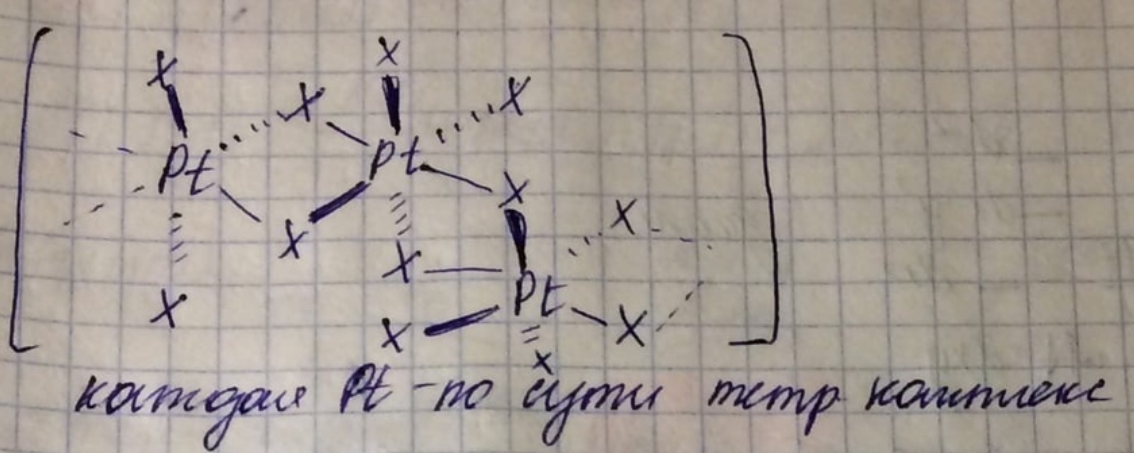 X X
X X
Pt Pt
X
X X
X Pt
X X X
X
каждая Pt - по сути тетр комплекс